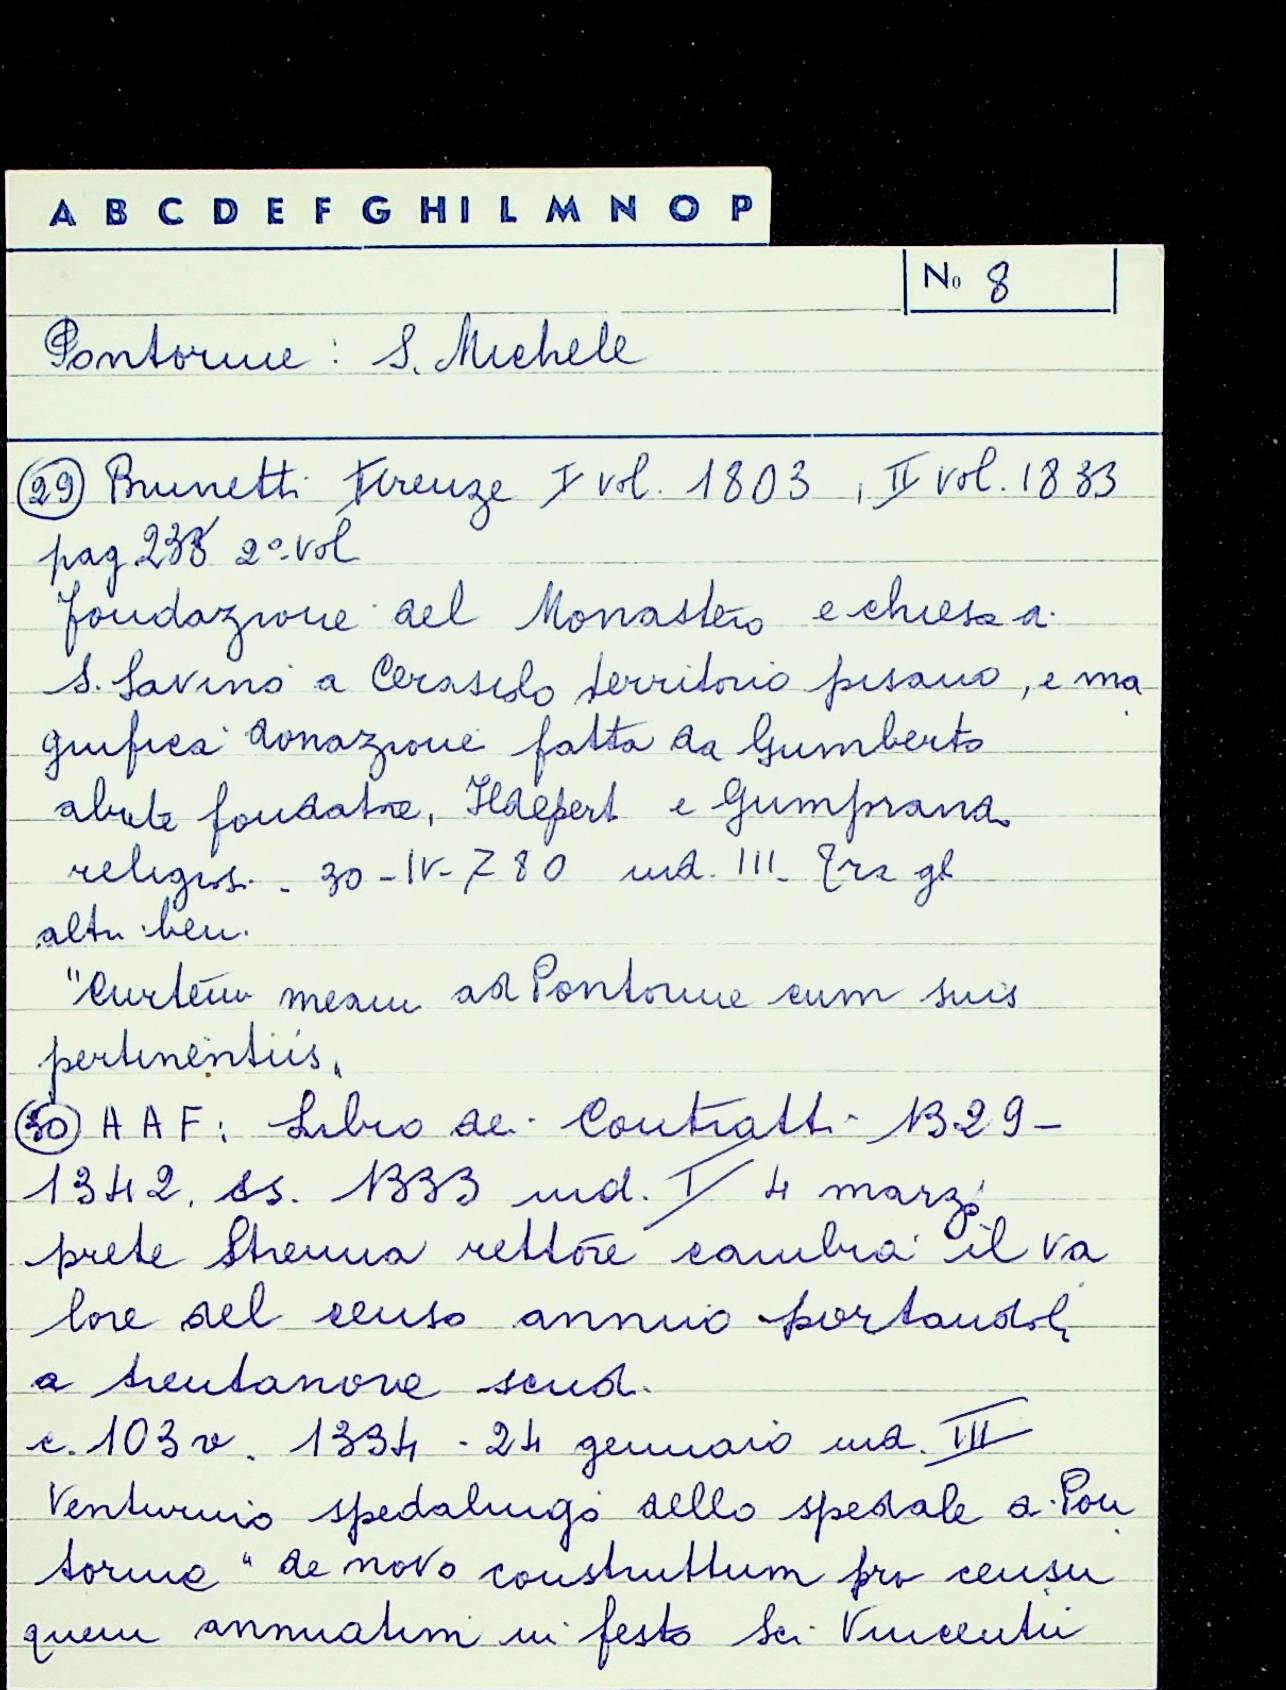 A B C D E F G H I L M N O P
No 8
Pontorme : S. Michele
(29) Brunetti Firenze I vol. 1803, II vol. 1833
pag 238 2° vol
fondazione del Monastero e chiesa di
S. Savino a Cerasiolo territorio pisano, e ma
gnifica donazione fatta da Gumberto
abate fondatore, Ildepert e Gumprand
religiosi - 30-IV-780 ind. III. Tra gli
altri beni
"Curtem meam ad Pontorme cum suis
pertinentiis"
(30) AAF: Libro dei Contratti 1329-
1342. ss. 1333 ind. I 4 marzo
prete Strenna rettore cambia il va
lore del censo annuo portandoli
a trentanove scudi
c. 103v. 1334 - 24 gennaio ind. III
Venturino spedalingo dello spedale di Pon
torme "de novo construttum pro censu
quem annuatim in festo Sci Vincentii